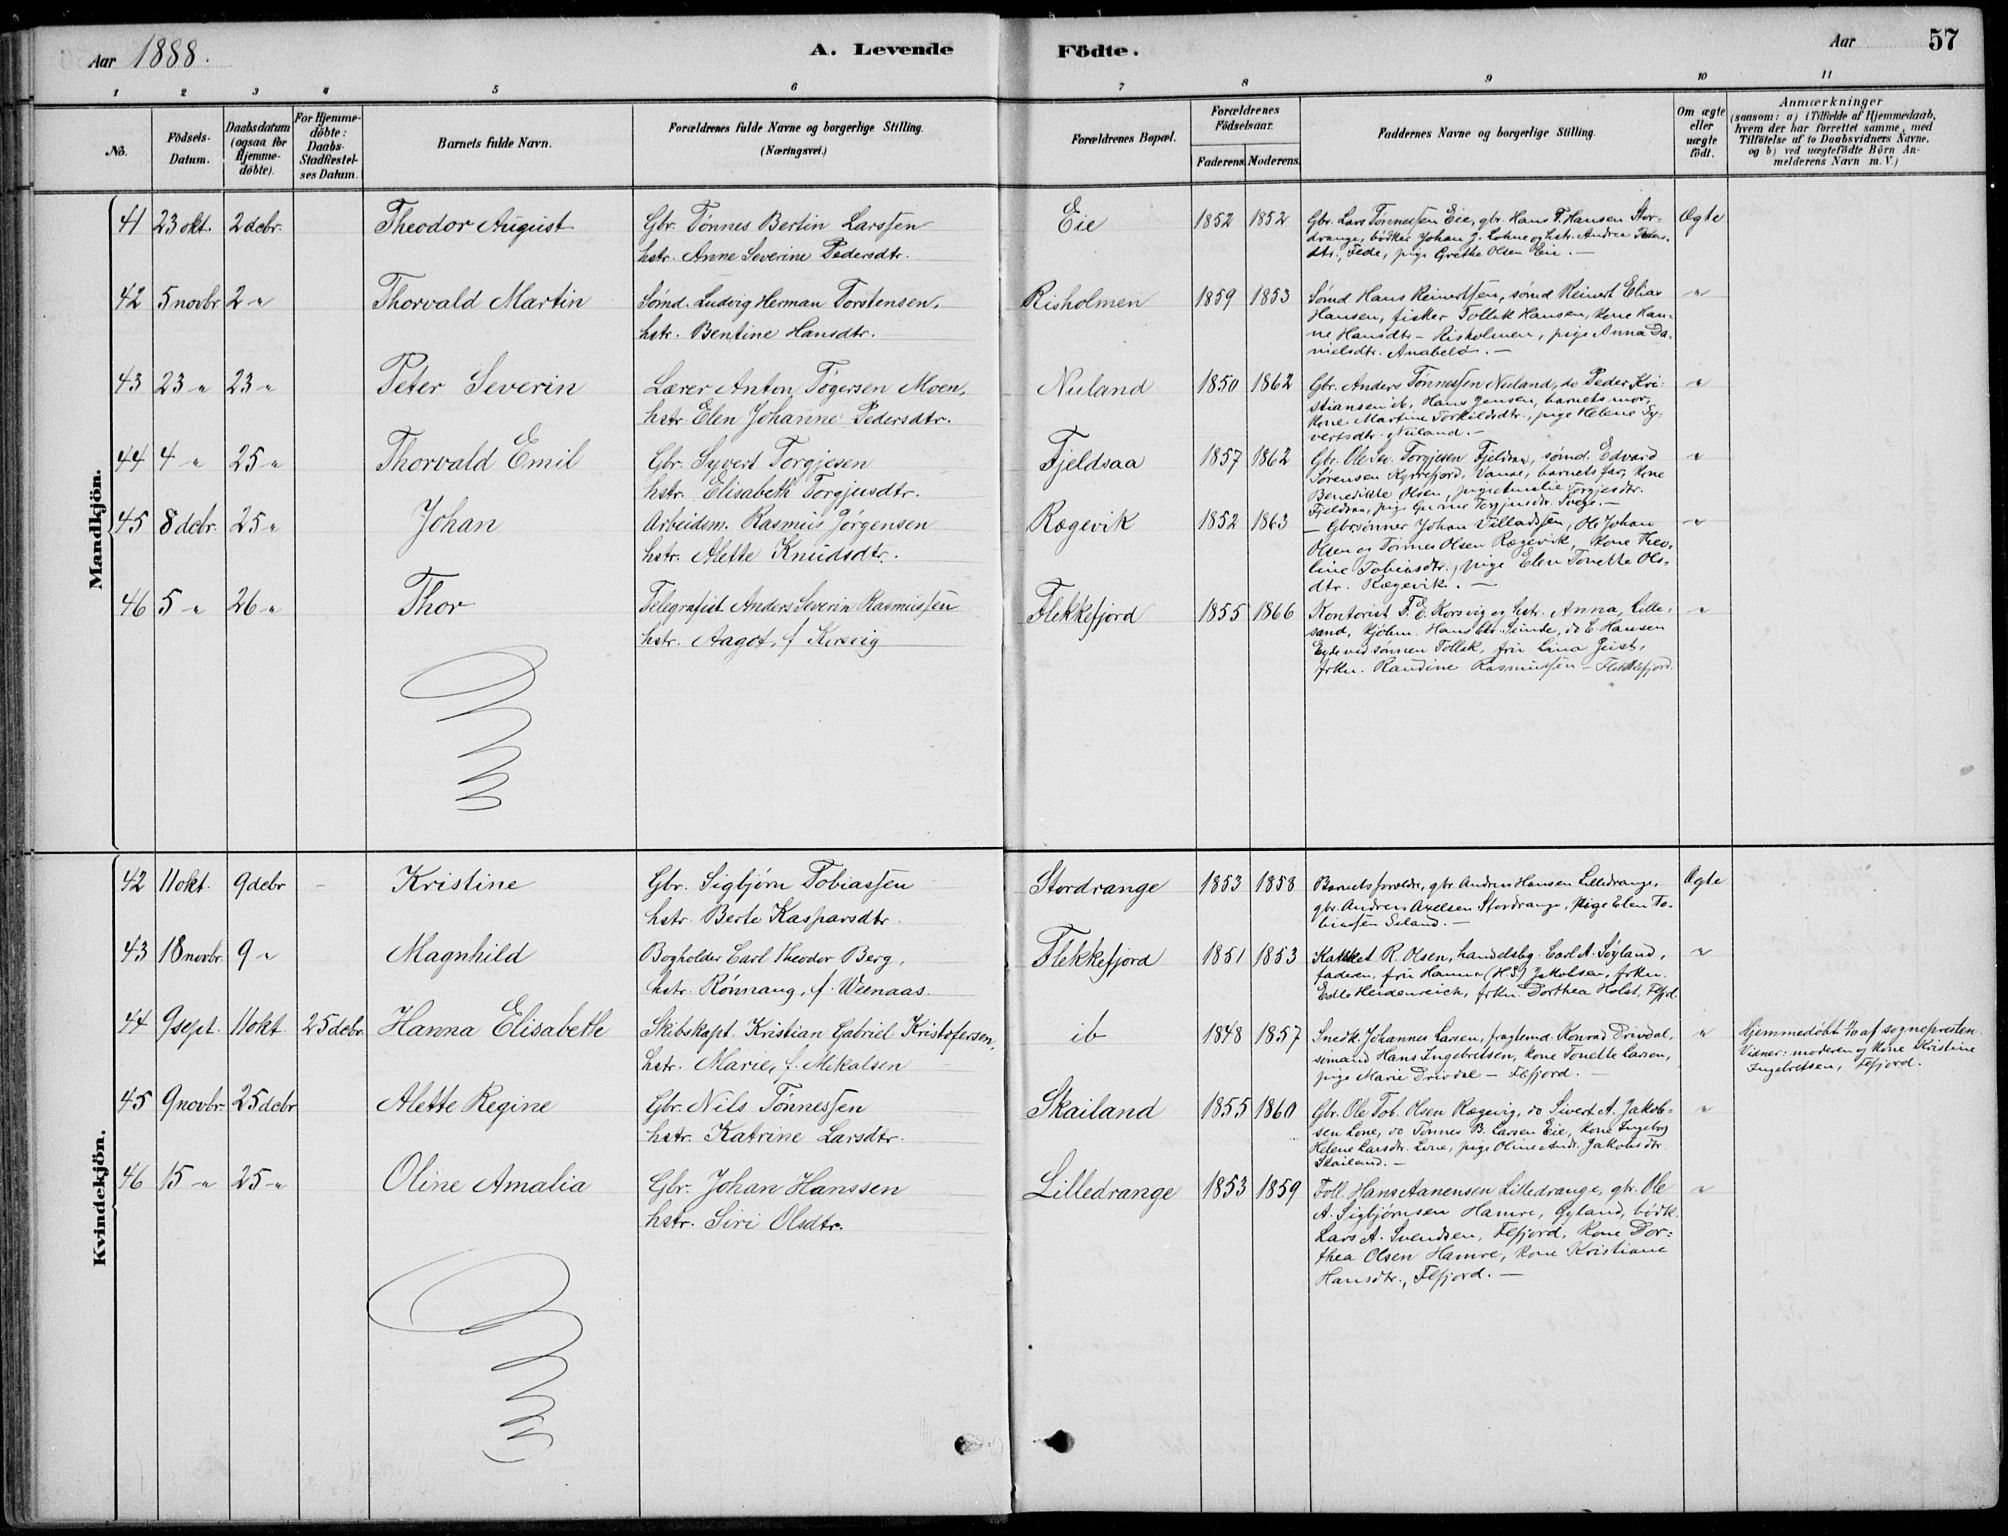 Aar 1888.
A. Levende Födte.
Aar 57
1 2 3 4 5 6 7 8 9 10 11
No.
Födsels-Datum.
Daabsdatum (ogsaa for Hjemme-döbte).
For Hjemme-döbte: Daabs-Stadfæstel-ses Datum.
Barnets fulde Navn.
Forældrenes fulde Navne og borgerlige Stilling.
(Næringsvei.)
Forældrenes Bopæl.
Forældrenes Födselsaar.
Faderens. Moderens.
Faddernes Navne og borgerlige Stilling.
Om ægte eller uægte födt.
Anmærkninger
(saasom: a) i Tilfælde af Hjemmedaab,
hvem der har forrettet samme, med
Tilföielse af to Daabsvidners Navne,
og b) ved uægtefödte Börn An-
melderens Navn m. V.)
Mandkjön.
41 23 okt. 2 decbr. Theodor August
Gbr. Tønnes Bertin Larssen
hstr. Anne Severine Pedersdtr.
Eie 1852 1852
Gbr. Lars Tønnessen Eie, gbr. Hans T. Hansen Stor-
drange, bødker Johan J. Lohne og hstr. Andrea Peders-
dtr., Fede, pige Grethe Olsen Eie. —
Ægte
42 5 novbr 2 " Thorvald Martin
Sømd. Ludvig Herman Torstensen,
hstr. Bentine Hansdtr.
Risholmen 1859 1853
Sømd Hans Reinertsen, sømd Reinert Elias
Hansen, fisker Tollek Hansen, kone Han-
ne Hansdtr - Risholmen, pige Anna Da-
nielsdtr. Anabelø. —
"
43 23 " 23 " Peter Severin
Lærer Anton Tøgersen Moen,
hstr. Elen Johanne Pedersdtr.
Nuland 1850 1862
Gbr. Anders Tønnessen Nuland, do Peder Kri-
stiansen ib, Hans Jensen, barnets mor,
kone Martine Torkildsdtr., pige Helene Sy-
vertsdtr. Nuland. —
"
44 4 " 25 " Thorvald Emil
Gbr. Syvert Torgjesen
hstr. Elisabeth Torgjusdtr.
Fjeldsaa 1857 1862
Gbr. Ole Sv. Torgjesen Fjeldsaa, sømd. Edvard
Sørensen Kyrrefjord, Vanse, barnets far, kone
Benedikte Olsen, pige Amalie Torgjesdtr.
Fjeldsaa, pige Gurine Torgjusdtr. Svege. —
"
45 8 decbr. 25 " Johan
Arbeidsm. Rasmus Jørgensen
hstr. Alette Knudsdtr.
Rægevik 1852 1863
— Gbrsønner Johan Villadssen, Ole Johan
Olsen og Tønnes Olsen Rægevik, kone Theo-
line Tobiasdtr., pige Elen Tonette Ols-
dtr. Rægevik. —
"
46 5 " 26 " Thor
Telegrafist Anders Severin Rasmussen
hstr. Aagot, f
Flekkefjord 1855 1866
Kontorist F. E. Korsvig og hstr. Anna, Lille-
sand, kjøbm. Hans Chr. Sinde, do C Hansen
Eyde ved sønnen Tollek, fru Lina Geist,
frkn. Randine Rasmussen - Flekkefjord.
"
Kvindekjön.
42 11 okt. 9 decbr - Kristine
Gbr. Sigbjørn Tobiassen
hstr. Berte Kasparsdtr.
Stordrange 1853 1858
Barnets foreldre, gbr. Anders Hansen Lilledrange,
gbr. Andreas Axelsen Stordrange, pige Elen To-
biassen Seland. —
Ægte
43 18 novbr. 9 " Magnhild
Bogholder Carl Theodor Berg,
hstr. Rønnaug, f. Weenaas
Flekkefjord 1851 1853
Kateket R. Olsen, handelsbg. Carl A. Søyland,
faderen, fru Hanna (H.S.) Jakobsen, frkn.
Edle Heidenreich, frkn. Dorthea Holst, Flfjd.
"
44 9 sept. 11 okt 25 decbr. Hanna Elisabeth
Skibskapt. Kristian Gabriel Kristofersen,
hstr. Marie, f. Mikalsen
ib 1848 1857
Snedk. Johannes Larsen, fragtemd. Konrad Drivdal,
sømand Hans Ingebretsen, kone Tonette Larsen,
pige Marie Drivdal - Flfjord. —
"
Hjemmedøbt af sognepresten.
Vidner: moderen og kone Kristine
Ingebretsen, Flfjord.
45 9 novbr 25 decbr Alette Regine
Gbr. Nils Tønnessen
hstr. Katrine Larsdtr.
Skailand 1855 1860
Gbr. Ole Tob. Olsen Rægevig, do Sivert A. Jakob-
sen Lone, do Tønnes B. Larsen Eie, kone Ingeborg
Helene Larsdtr. Lone, pige Oline Andr. Jakobsdtr.
Skailand. —
"
46 15 " 25 " Oline Amalia
Gbr. Johan Hanssen
hstr. Siri Olsdtr.
Lilledrange 1853 1859
Foll. Hans Aanensen Lilledrange, gbr. Ole
A. Sigbjørnsen Hamre, Gyland, bødk.
Lars A. Svendsen, Flfjord, kone Dor-
thea Olsen Hamre, kone Kristiane
Hansdtr., Flfjord. —
"